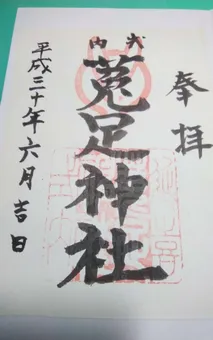 奉拝
式内
菟足神社
平成三十年六月吉日